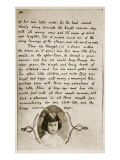 90
of her own little sister. So the boat wound
slowly along, beneath the bright summer-day,
with its merry crew and its music of voices
and laughter, till it passed round one of the
many turnings of the stream, and she saw it no more.
Then she thought, (in a dream within the
dream, as it were,) how this same little Alice
would, in the after-time, be herself a grown
woman: and how she would keep, through her
riper years, the simple and loving heart of
her childhood: and how she would gather around
her other little children, and make their eyes
bright and eager with many a wonderful tale,
perhaps even with these very adventures of
the little Alice of long-ago: and how she would
feel with all their simple sorrows, and find
a pleasure in all their simple joys,
remembering her own child-life, and the
happy summer days.